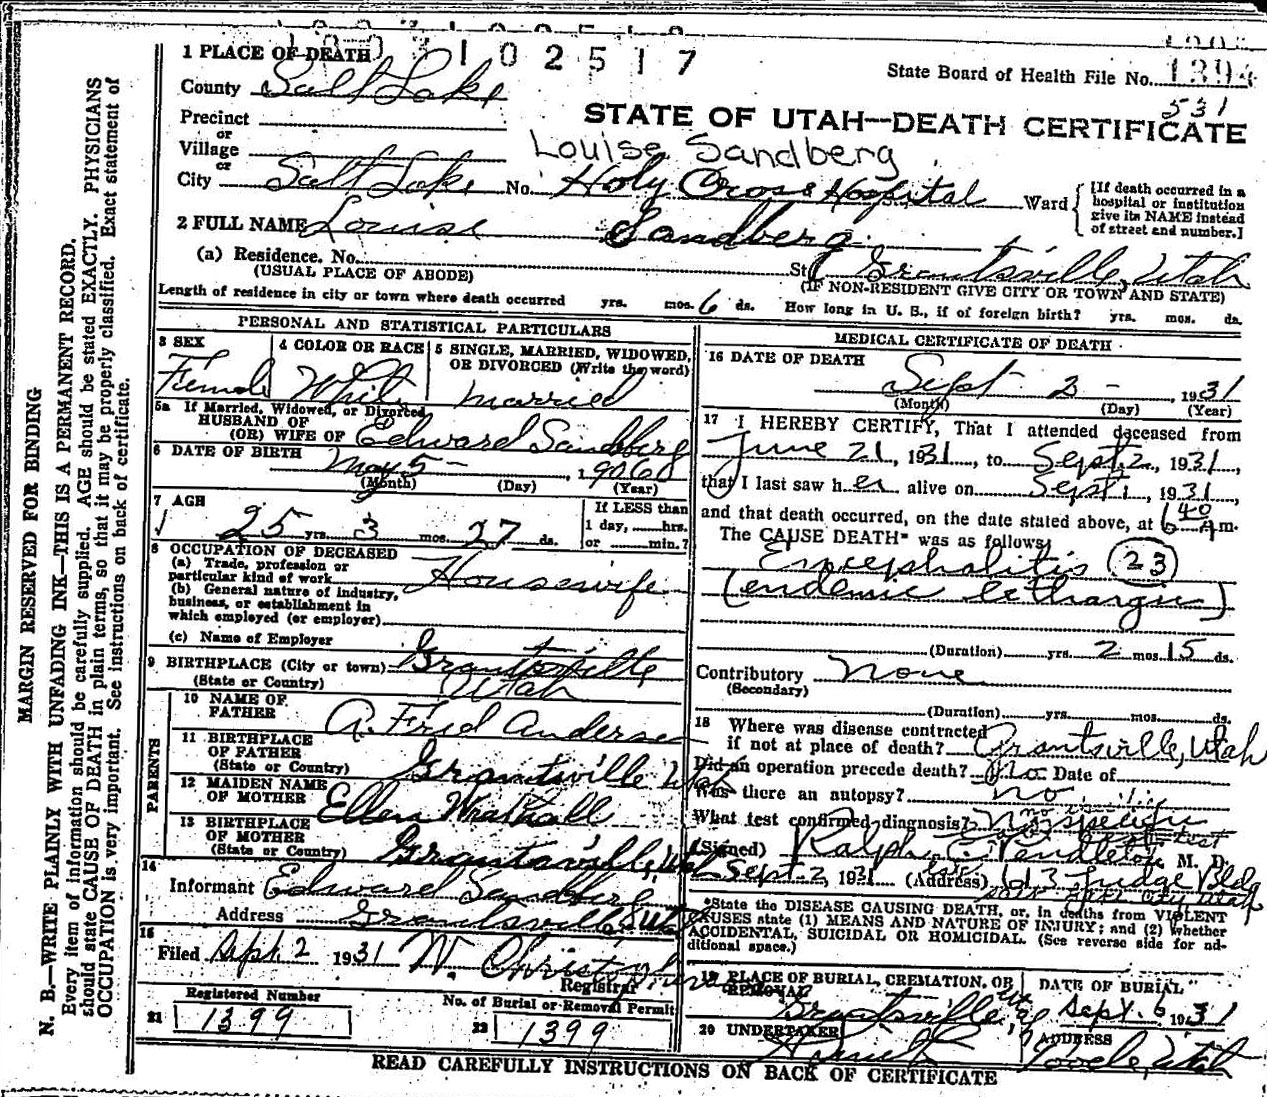 102517
State Board of Health File No. 1394
531
1 PLACE OF DEATH
County Salt Lake
STATE OF UTAH—DEATH CERTIFICATE
Precinct
or
Village
or
Louise Sandberg
City Salt Lake No. Holy Cross Hospital Ward
[If death occurred in a
hospital or institution
give its NAME instead
of street and number.]
2 FULL NAME Louise Sandberg
(a) Residence. No. St. Grantsville, Utah
(USUAL PLACE OF ABODE) (IF NON-RESIDENT GIVE CITY OR TOWN AND STATE)
Length of residence in city or town where death occurred yrs. mos. 6 ds. How long in U. S., if of foreign birth? yrs. mos. ds.
PERSONAL AND STATISTICAL PARTICULARS
3 SEX 4 COLOR OR RACE 5 SINGLE, MARRIED, WIDOWED,
OR DIVORCED (Write the word)
Female White Married
5a If Married, Widowed, or Divorced
HUSBAND OF
(OR) WIFE OF Edward Sandberg
6 DATE OF BIRTH May 5 - 1906
(Month) (Day) (Year)
7 AGE If LESS than
25 yrs. 3 mos. 27 ds. 1 day, hrs.
or min.?
8 OCCUPATION OF DECEASED
(a) Trade, profession or
particular kind of work Housewife
(b) General nature of industry,
business, or establishment in
which employed (or employer)
(c) Name of Employer
9 BIRTHPLACE (City or town) Grantsville
(State or Country) Utah
PARENTS
10 NAME OF
FATHER A. Fred Anderson
11 BIRTHPLACE
OF FATHER
(State or Country) Grantsville Utah
12 MAIDEN NAME
OF MOTHER Ellen Wrathall
13 BIRTHPLACE
OF MOTHER
(State or Country) Grantsville, Utah
14
Informant Edward Sandberg
Address Grantsville, Utah
15
Filed Sept. 2 1931 W Christopherson
Registrar
Registered Number No. of Burial or Removal Permit
21 1399 22 1399
MEDICAL CERTIFICATE OF DEATH
16 DATE OF DEATH
Sept 2 - , 1931
(Month) (Day) (Year)
17 I HEREBY CERTIFY, That I attended deceased from
June 21, 1931, to Sept. 2, 1931,
that I last saw her alive on Sept 1, 1931,
and that death occurred, on the date stated above, at 6 40 A m.
The CAUSE DEATH* was as follows:
Encephalitis (23)
(endemic lethargic)
(Duration) yrs. 2 mos. 15 ds.
Contributory None
(Secondary)
(Duration) yrs. mos. ds.
18 Where was disease contracted
if not at place of death? Grantsville, Utah
Did an operation precede death? No Date of
Was there an autopsy? no
What test confirmed diagnosis? no specific test
(Signed) Ralph C. Pendleton, M. D.
Sept. 2, 1931 (Address) 613 Judge Bldg
Salt Lake City Utah
*State the DISEASE CAUSING DEATH, or, in deaths from VIOLENT
CAUSES state (1) MEANS AND NATURE OF INJURY; and (2) whether
ACCIDENTAL, SUICIDAL OR HOMICIDAL. (See reverse side for ad-
ditional space.)
19 PLACE OF BURIAL, CREMATION, OR
REMOVAL
Grantsville
DATE OF BURIAL
Sept. 6 1931
20 UNDERTAKER
ADDRESS
Utah
READ CAREFULLY INSTRUCTIONS ON BACK OF CERTIFICATE
MARGIN RESERVED FOR BINDING
N. B.—WRITE PLAINLY WITH UNFADING INK—THIS IS A PERMANENT RECORD.
Every item of information should be carefully supplied. AGE should be stated EXACTLY. PHYSICIANS
should state CAUSE OF DEATH in plain terms, so that it may be properly classified. Exact statement of
OCCUPATION is very important. See instructions on back of certificate.